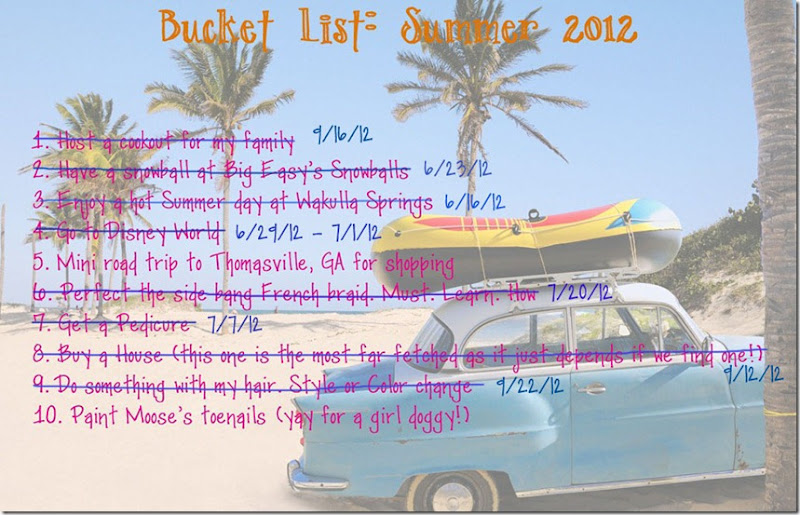 Bucket List: Summer 2012
1. Host a cookout for my family 9/16/12
2. Have a snowball at Big Easy's Snowballs 6/23/12
3. Enjoy a hot Summer day at Wakulla Springs 6/16/12
4. Go to Disney World 6/29/12 - 7/1/12
5. Mini road trip to Thomasville, GA for shopping
6. Perfect the side bang French braid. Must. Learn. How 7/20/12
7. Get a Pedicure 7/7/12
8. Buy a House (this one is the most far fetched as it just depends if we find one!)
9/12/12
9. Do something with my hair. Style or Color change 9/22/12
10. Paint Moose's toenails (yay for a girl doggy!)